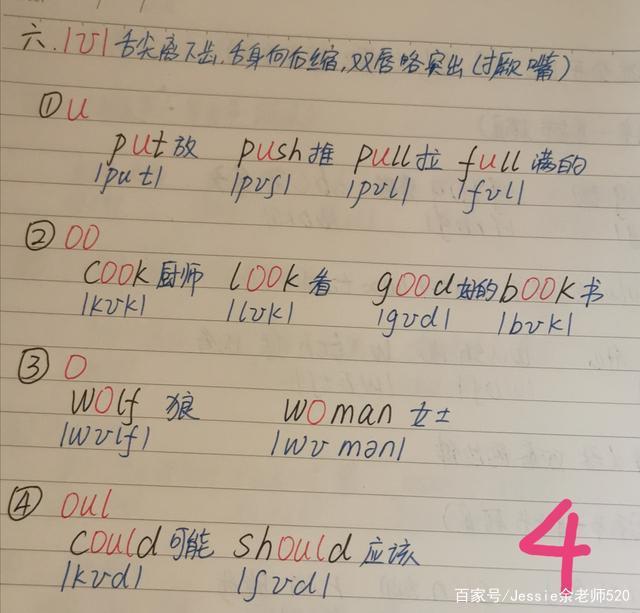 六. |ʊ| 舌尖离下齿,舌身向后缩,双唇略突出(讨厌嘴)
① u
put放 push推 pull拉 full满的
|put| |pʊʃ| |pʊl| |fʊl|
② oo
cook厨师 look看 good好的 book书
|kʊk| |lʊk| |gʊd| |bʊk|
③ o
wolf 狼 woman 女士
|wʊlf| |wʊ mən|
④ oul
could可能 should应该
|kʊd| |ʃʊd|
4
百家号/Jessie余老师520